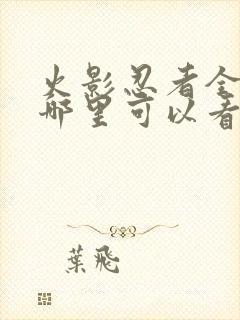 火影忍者全
哪里可以看
葉飛